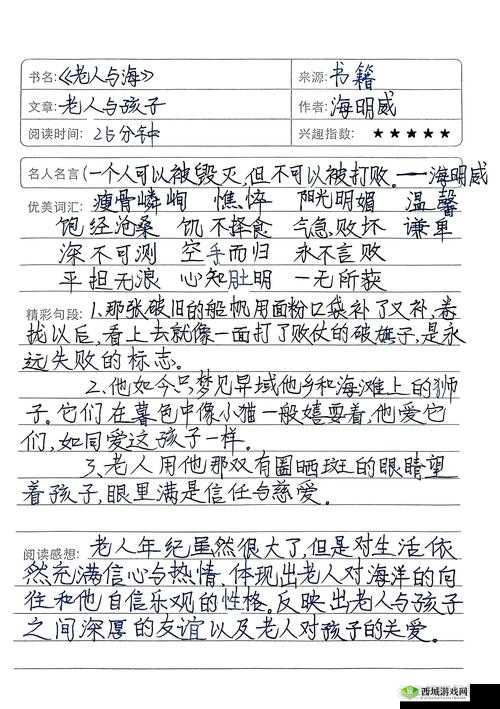 书名:《老人与海》 来源: 书籍
文章: 老人与孩子 作者: 海明威
阅读时间: 25分钟 兴趣指数: ★★★★★
名人名言(一个人可以被毁灭,但不可以被打败.——海明威
优美词汇: 瘦骨嶙峋 憔悴 阳光明媚 温馨
饱经沧桑 饥不择食 气急败坏 谦卑
深不可测 空手而归 永不言败
平担无浪 心知肚明 一无所获
精彩句段: 1.那张破旧的船帆用面粉口袋补了又补,卷
拢以后,看上去就像一面打了败仗的破旗子,是永
远失败的标志。
2.他如今只梦见异域他乡和海滩上的狮
子。它们在暮色中像小猫一般嬉耍着,他爱它
们,如同爱这孩子一样。
3.老人用他那双有圈晒斑的眼睛望
着孩子,眼里满是信任与慈爱。
阅读感想: 老人年纪虽然很大了,但是对生活依
然充满信心与热情,体现出老人对海洋的向
往和他自信乐观的性格。反映出老人与孩子
之间深厚的友谊以及老人对孩子的关爱。
西城游戏网